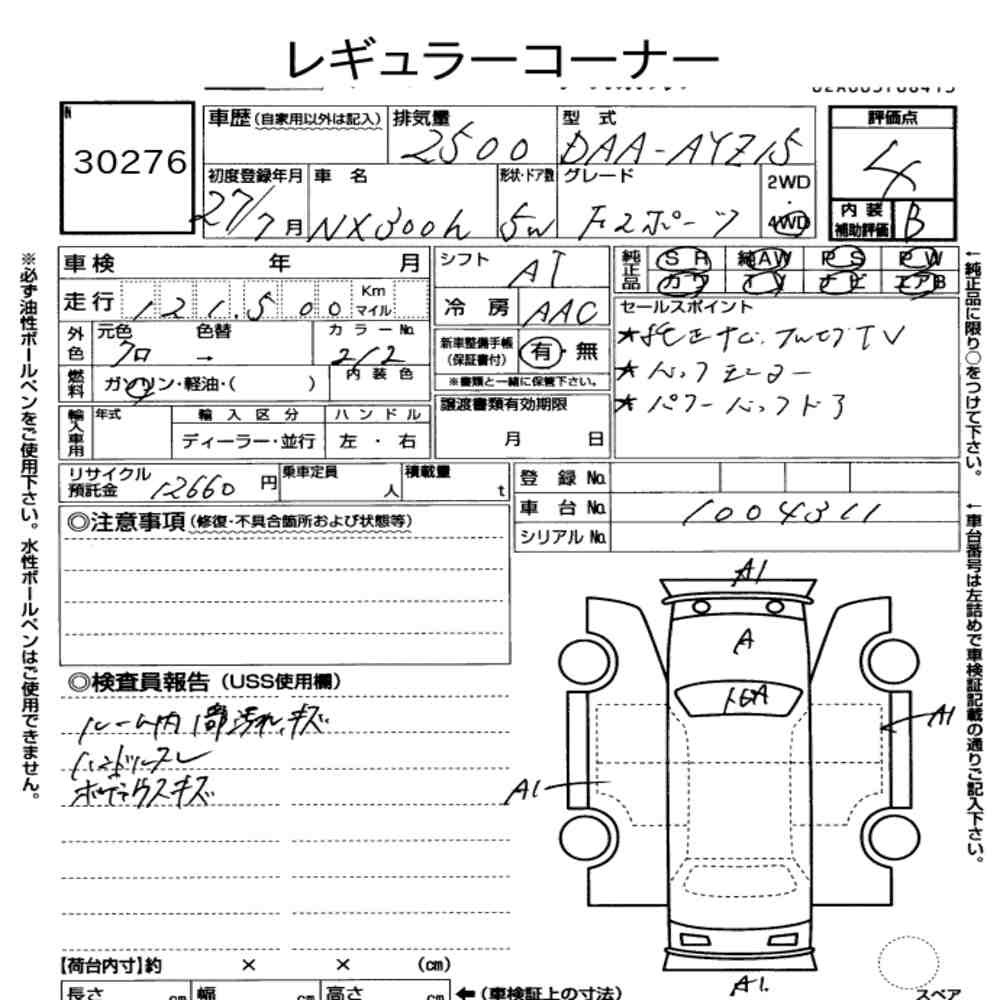 レギュラーコーナー
30276
車歴(自家用以外は記入)
排気量 2500
型 式 DAA-AYZ15
評価点 4
初度登録年月 27/7月
車 名 NX300h
形状・ドア数 5W
グレード Fスポーツ
2WD・4WD
内装補助評価 B
車検 年 月
シフト AT
純正品 SR 純AW PS PW
カワ TV ナビ エアB
走行 121,500 Km マイル
冷房 AAC
セールスポイント
★純正ナビ.フルセグTV
★バックモニター
★パワーバックドア
外色 元色 クロ 色替 → カラーNo. 212
新車整備手帳(保証書付) 有・無
※書類と一緒に保管下さい。
燃料 ガソリン・軽油・( )
内装色
輸入車用 年式 輸入区分 ハンドル
ディーラー・並行 左・右
譲渡書類有効期限
月 日
リサイクル預託金 12660 円
乗車定員 人
積載量 t
登録 No.
車台 No. 1004311
シリアル No.
◎注意事項(修復・不具合箇所および状態等)
◎検査員報告(USS使用欄)
ルーム内1部汚れ、キズ
ハンドルスレ
A1
A
A1
A1
A1
【荷台内寸】約 × × (cm)
長さ cm 幅 cm 高さ cm ←(車検証上の寸法)
スペア
※必ず油性ボールペンをご使用下さい。水性ボールペンはご使用できません。
←純正品に限り○をつけて下さい。
←車台番号は左詰めで車検証記載の通りご記入下さい。